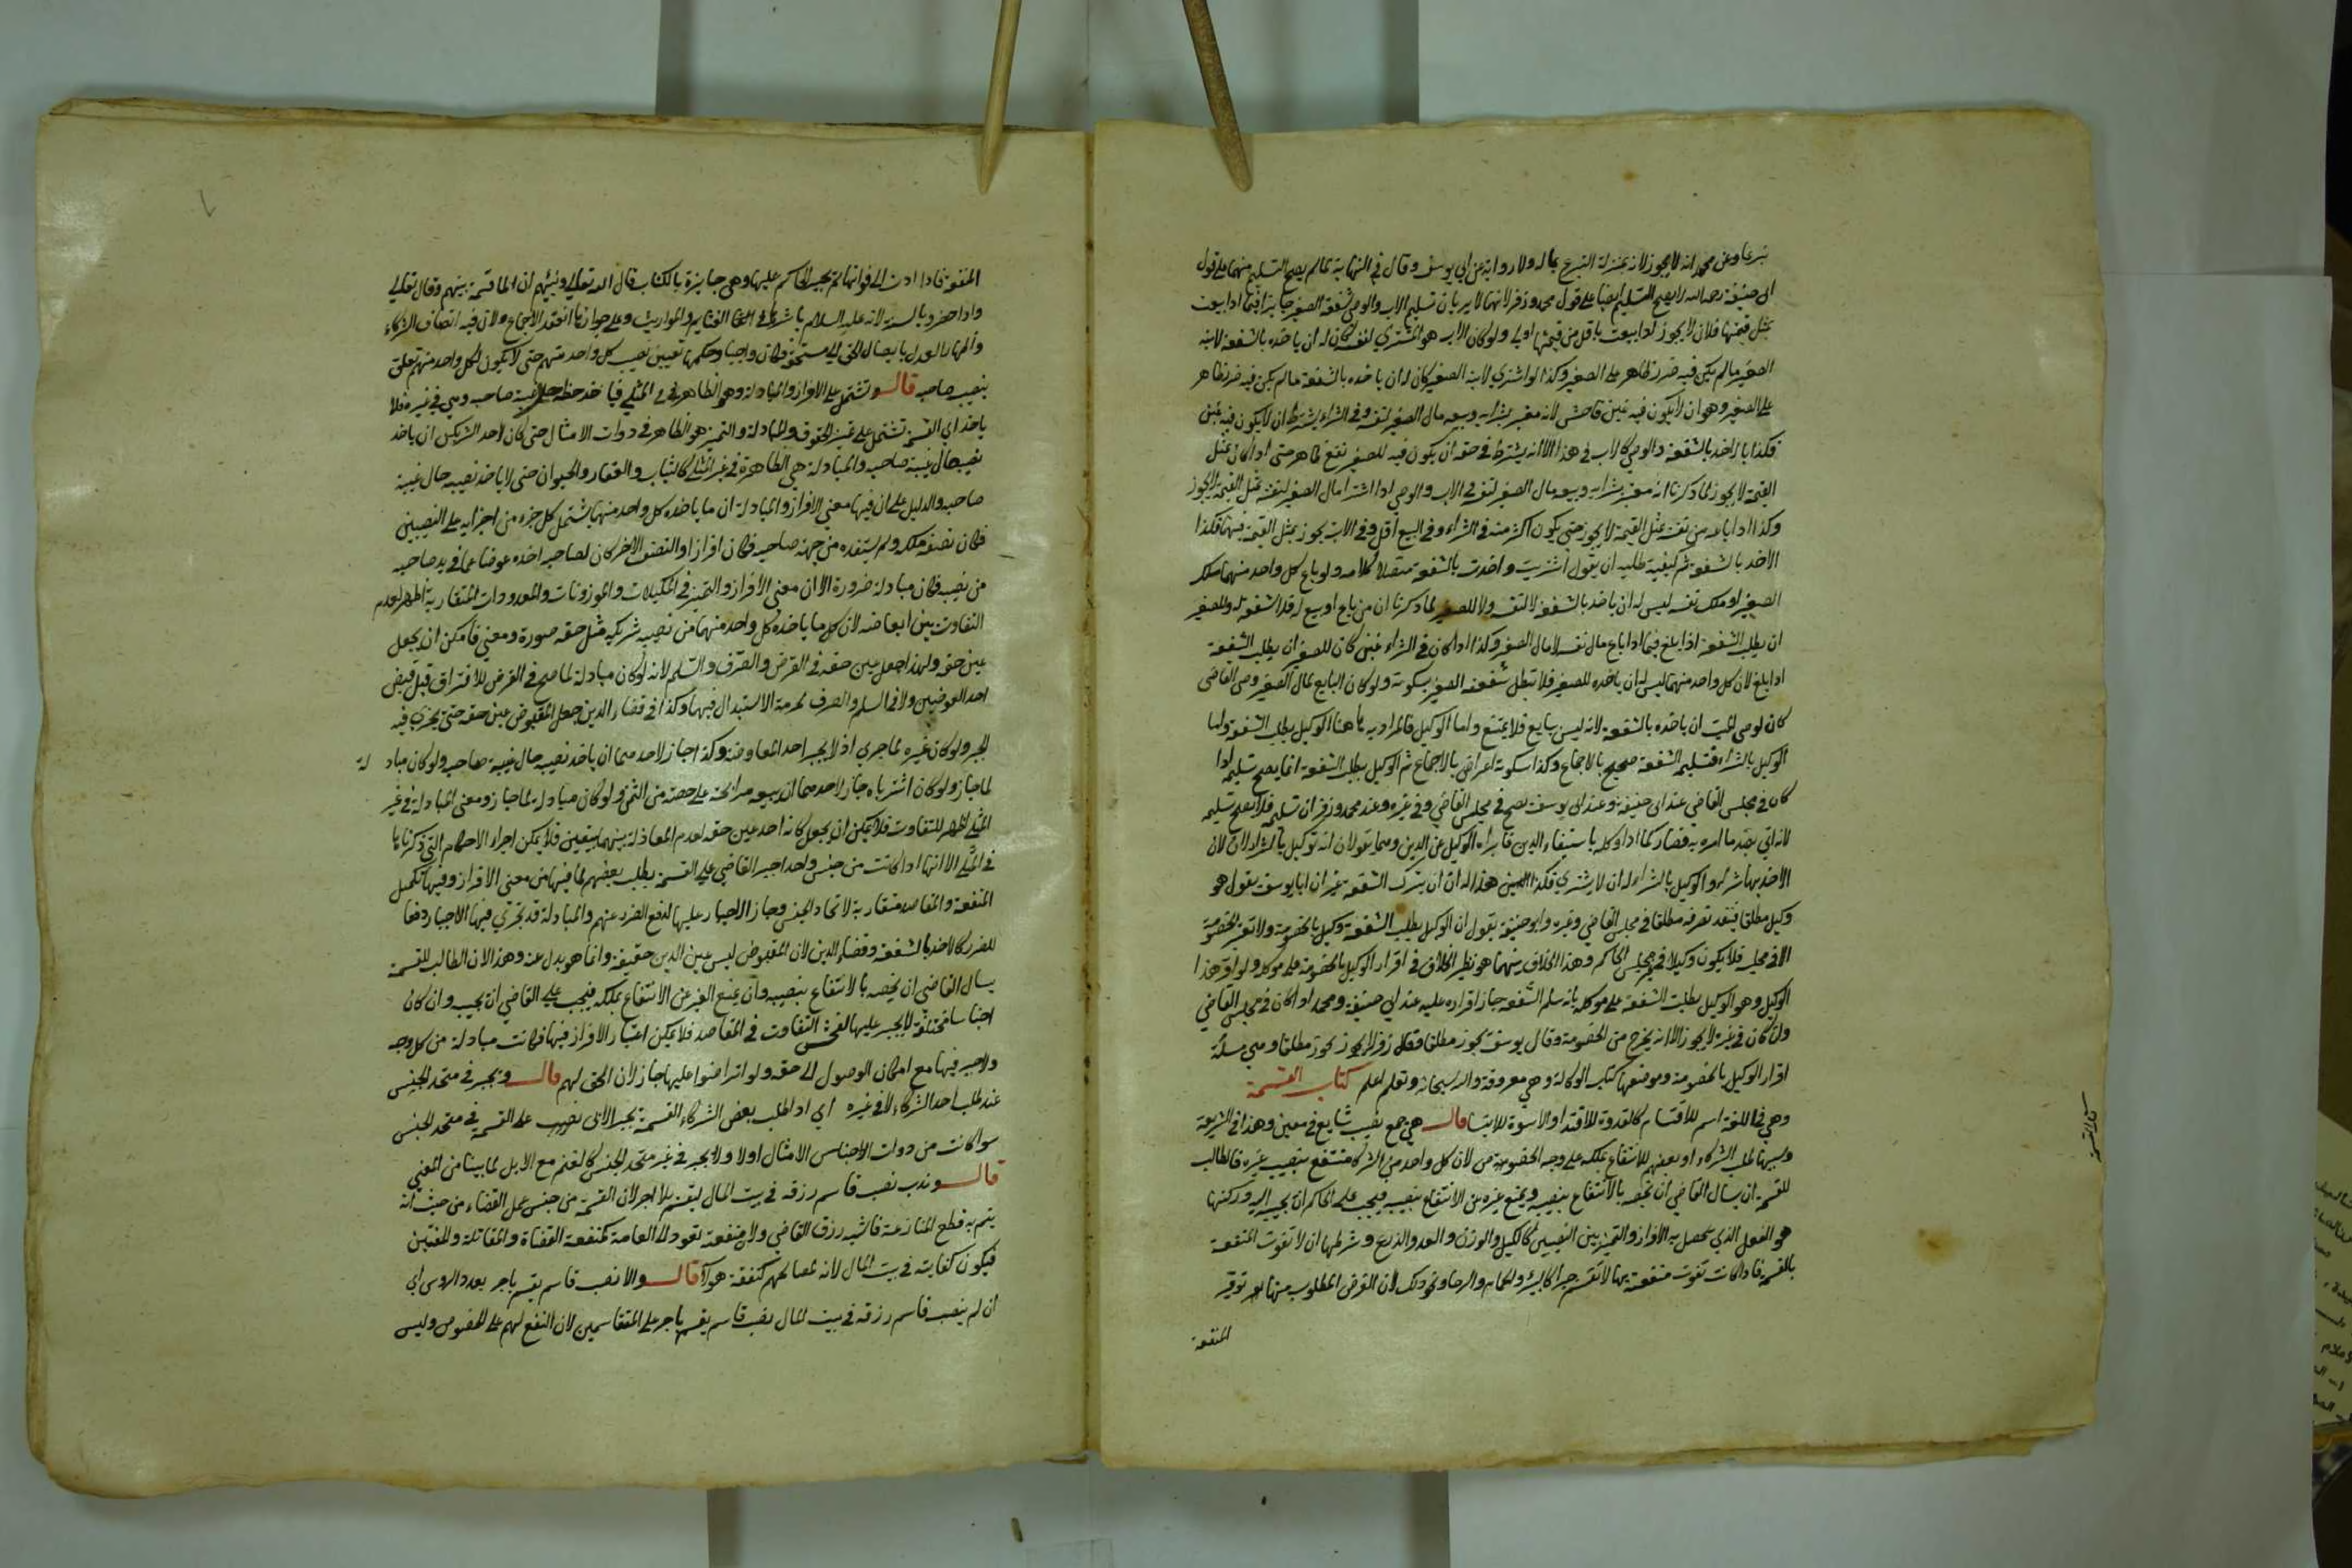 تبرعا وعن محمد انه لا يجوز لانه بمنزلة التبرع بماله ولا رواية عن ابي يوسف وقال في النهاية لما لم يصح التسليم منهما على قول
ابي حنيفة رحمه الله لا يصح التسليم ايضا على قول محمد وزفر لانهما لا يريان تسليم الاب والوصي شفعة الصغير جايزا فيما اذا بيعت
بمثل قيمتها فلان لا يجوز اذا بيعت باقل من قيمتها اولى ولو كان الاب هو المشتري لنفسه كان له ان ياخذه بالشفعة لابنه
الصغير ما لم يكن فيه ضرر ظاهر على الصغير وكذا لو اشترى لابنه الصغير كان له ان ياخذه بالشفعة ما لم يكن فيه ضرر ظاهر
على الصغير وهو ان لا يكون فيه غبن فاحش لانه معتبر بشرايه وبيعه مال الصغير لنفسه وفي الشراء يشترط ان لا يكون فيه غبن
فكذا بالاخذ بالشفعة والوصي كالاب في هذا الا انه يشترط في حقه ان يكون فيه للصغير نفع ظاهر حتى اذا كان بمثل
القيمة لا يجوز لما ذكرنا انه معتبر بشرايه وبيعه مال الصغير لنفسه وفي الاب والوصي اذا اشترا مال الصغير لنفسه بمثل القيمة لا يجوز
وكذا اذا باعه من نفسه بمثل القيمة لا يجوز حتى يكون اكثر منه في الشراء وفي البيع اقل وفي الاب يجوز بمثل القيمة فيهما فكذا
الاخذ بالشفعة ثم كيفية طلبه ان يقول اشتريت واخذت بالشفعة متصلا كلامه ولو باع كل واحد منهما ملك
الصغير او ملك نفسه ليس له ان ياخذ بالشفعة لا لنفسه ولا للصغير لما ذكرنا ان من باع او بيع له فلا شفعة له وللصغير
ان يطلب الشفعة اذا بلغ فيما اذا باع مال نفسه لا مال الصغير وكذا اذا كان في الشراء غبن كان للصغير ان يطلب الشفعة
اذا بلغ لان كل واحد منهما ليس له ان ياخذه للصغير فلا تبطل شفعة الصغير بسكوته ولو كان البايع لمال الصغير وصي القاضي
كان لوصي الميت ان ياخذه بالشفعة لانه ليس ببايع فلا يمتنع واما الوكيل فالمراد به هاهنا الوكيل بطلب الشفعة واما
الوكيل بالشراء فتسليمه الشفعة صحيح بالاجماع وكذا سكوته اعراض بالاجماع ثم الوكيل بطلب الشفعة انما يصح تسليمه اذا
كان في مجلس القاضي عند ابي حنيفة وعند ابي يوسف يصح في مجلس القاضي وفي غيره وعند محمد وزفر ان تسليمه فلا يصح تسليمه
لانه اتى بضد ما امره به فصار كما اذا وكله باستيفاء الدين فابراه الوكيل عن الدين وهما يقولان انه توكيل بالشراء لان
الاخذ بها شراء والوكيل بالشراء له ان لا يشتري فكذا هذا له ان يترك الشفعة غير ان ابا يوسف يقول هو
وكيل مطلقا فينفذ تصرفه مطلقا في مجلس القاضي وغيره وابو حنيفة يقول ان الوكيل بطلب الشفعة وكيل بالخصومة ولا تعتبر الخصومة
الا في مجلسه فلا يكون وكيلا في غير مجلس الحاكم وهذا الخلاف بينهما هو نظير الخلاف في اقرار الوكيل بالخصومة على موكله ولو اقر هذا
الوكيل وهو الوكيل بطلب الشفعة على موكله بانه سلم الشفعة جاز اقراره عليه عند ابي حنيفة ومحمد اذا كان في مجلس القاضي
وان كان في غيره لا يجوز الا انه يخرج من الخصومة وقال يوسف يجوز مطلقا وقال زفر لا يجوز مطلقا وهي مسئلة
اقرار الوكيل بالخصومة وموضعها كتاب الوكالة وهي معروفة والله سبحانه وتعلم اعلم كتاب القسمة
وهي في اللغة اسم للاقتسام كالقدوة للاقتدا والاسوة للايتسا قال هي جمع نصيب شايع في معين وهذا في الشريعة
وسببها طلب الشركاء او بعضهم للانتفاع بملكه على وجه الخصوص لان كل واحد من الشركا منتفع بنصيب غيره فالطالب
للقسمة ان يسال القاضي ان يخصه بالانتفاع بنصيبه ويمنع غيره عن الانتفاع بنصيبه فيجب على الحاكم ان يجيبه اليه وركنها
هو الفعل الذي يحصل به الافراز والتمييز بين النصيبين كالكيل والوزن والعد والذرع وشرطها ان لا تفوت المنفعة
بالقسمة فاذا كانت تفوت منفعته بها لا تقسم جبرا كالبير والحمام والرحا ونحو ذلك لان الغرض المطلوب منها هو توفير
المنفعة
كتاب القسمة
المنفعة فاذا ادت الى فواتها لم يجبر الحاكم عليها وهي جايزة بالكتاب قال الله تعالى ونبئهم ان الماء قسمة بينهم وقال تعالى
واذا حضر وبالسنة لانه عليه السلام باشرها في الغنايم والمواريث وعلى جوازها انعقد الاجماع ولان فيه انصاف الشركاء
والهارا لعدل بايصال الحق الى مستحقه فكان واجبا وحكمها تعيين نصيب كل واحد منهم حتى لا يكون لكل واحد منهم تعلق
بنصيب صاحبه قال وتشتمل على الافراز والمبادلة وهو الظاهر في المثلي فياخذ حظه حال غيبة صاحبه وهي في غيره فلا
ياخذ اي القسمة تشتمل على تمييز الحقوق والمبادلة والتمييز هو الظاهر في ذوات الامثال حتى كان لاحد الشريكين ان ياخذ
نصيبه حال غيبة صاحبه والمبادلة هي الظاهرة في غير المثلي كالثياب والعقار والحيوان حتى لا ياخذ نصيبه حال غيبة
صاحبه والدليل على ان فيها معنى الافراز والمبادلة ان ما ياخذه كل واحد منهما يشتمل كل جزء من اجزايه على النصيبين
فكان نصفه ملكه ولم يستفده من جهة صاحبه فكان افرازا والنصف الاخر كان لصاحبه اخذه عوضا عما في يد صاحبه
من نصيبه فكان مبادلة ضرورة الا ان معنى الافراز والتمييز في المكيلات والموزونات والمعدودات المتقاربة اظهر لعدم
التفاوت بين ابعاضه لان كل ما ياخذه كل واحد منهما من نصيب شريكه مثل حقه صورة ومعنى فامكن ان يجعل
عين حقه ولهذا جعل عين حقه في القرض والصرف والسلم لانه لو كان مبادلة لما صح في القرض للافتراق قبل قبض
احد العوضين ولا في السلم والصرف لحرمة الاستبدال فيهما وكذا في قضاء الدين جعل المقبوض عين حقه حتى يجري فيه
الجبر ولو كان غيره لما جرى اذ لا يجبر احد المعاوضة وكذا جاز لاحدهما ان ياخذ نصيبه حال غيبة صاحبه ولو كان مبادلة
لما جاز ولو كان اشترياه جاز لاحدهما ان يبيعه مرابحة على حصته من الثمن ولو كان مبادلة لما جاز ومعنى المبادلة في غير
المثلي اظهر للتفاوت فلا يمكن ان يجعل كانه اخذ عين حقه لعدم المعادلة بينهما بيقين فلا يمكن اجراء الاحكام التي ذكرناها
في المثلي الا انها اذا كانت من جنس واحد اجبر القاضي على القسمة بطلب بعضهم لما فيها من معنى الافراز وفيها تكميل
المنفعة والمقاصد متقاربة لاتحاد الجنس وجاز الاجبار عليها لدفع الضرر عنهم والمبادلة قد يجري فيها الاجبار دفعا
للضرر كالاخذ بالشفعة وقضاء الدين لان المقبوض ليس عين الدين حقيقة وانما هو بدل عنه وهذا لان الطالب للقسمة
يسال القاضي ان يخصه بالانتفاع بنصيبه وان يمنع الغير عن الانتفاع بملكه فيجب على القاضي ان يجيبه وان كان
اجناسا مختلفة لا يجبر عليها لفحش التفاوت في المقاصد فلا يمكن اعتبار الافراز فيها فكانت مبادلة من كل وجه
ولا جبر فيها مع امكان الوصول الى حقه ولو تراضوا عليها جاز لان الحق لهم قال ويجبر في متحد الجنس
عند طلب احد الشركاء لا في غيره اي اذا طلب بعض الشركاء القسمة يجبر الابي على القسمة في متحد الجنس
سوا كانت من ذوات الامثال اولا ولا يجبر في غير متحد الجنس كالغنم مع الابل لما بينا من المعنى
قال وندب نصب قاسم رزقه في بيت المال ليقسم بلا اجر لان القسمة من جنس عمل القضاء من حيث انه
يتم به قطع المنازعة فاشبه رزق القاضي ولان منفعته تعود الى العامة كمنفعة القضاة والمقاتلة والمفتين
فيكون كفايته في بيت المال لانه لمصالحهم كنفقة هولا قال والا نصب قاسم يقسم باجر بعدد الروس اي
ان لم ينصب قاسم رزقه في بيت المال نصب قاسم يقسم باجر على المتقاسمين لان النفع لهم على الخصوص وليس